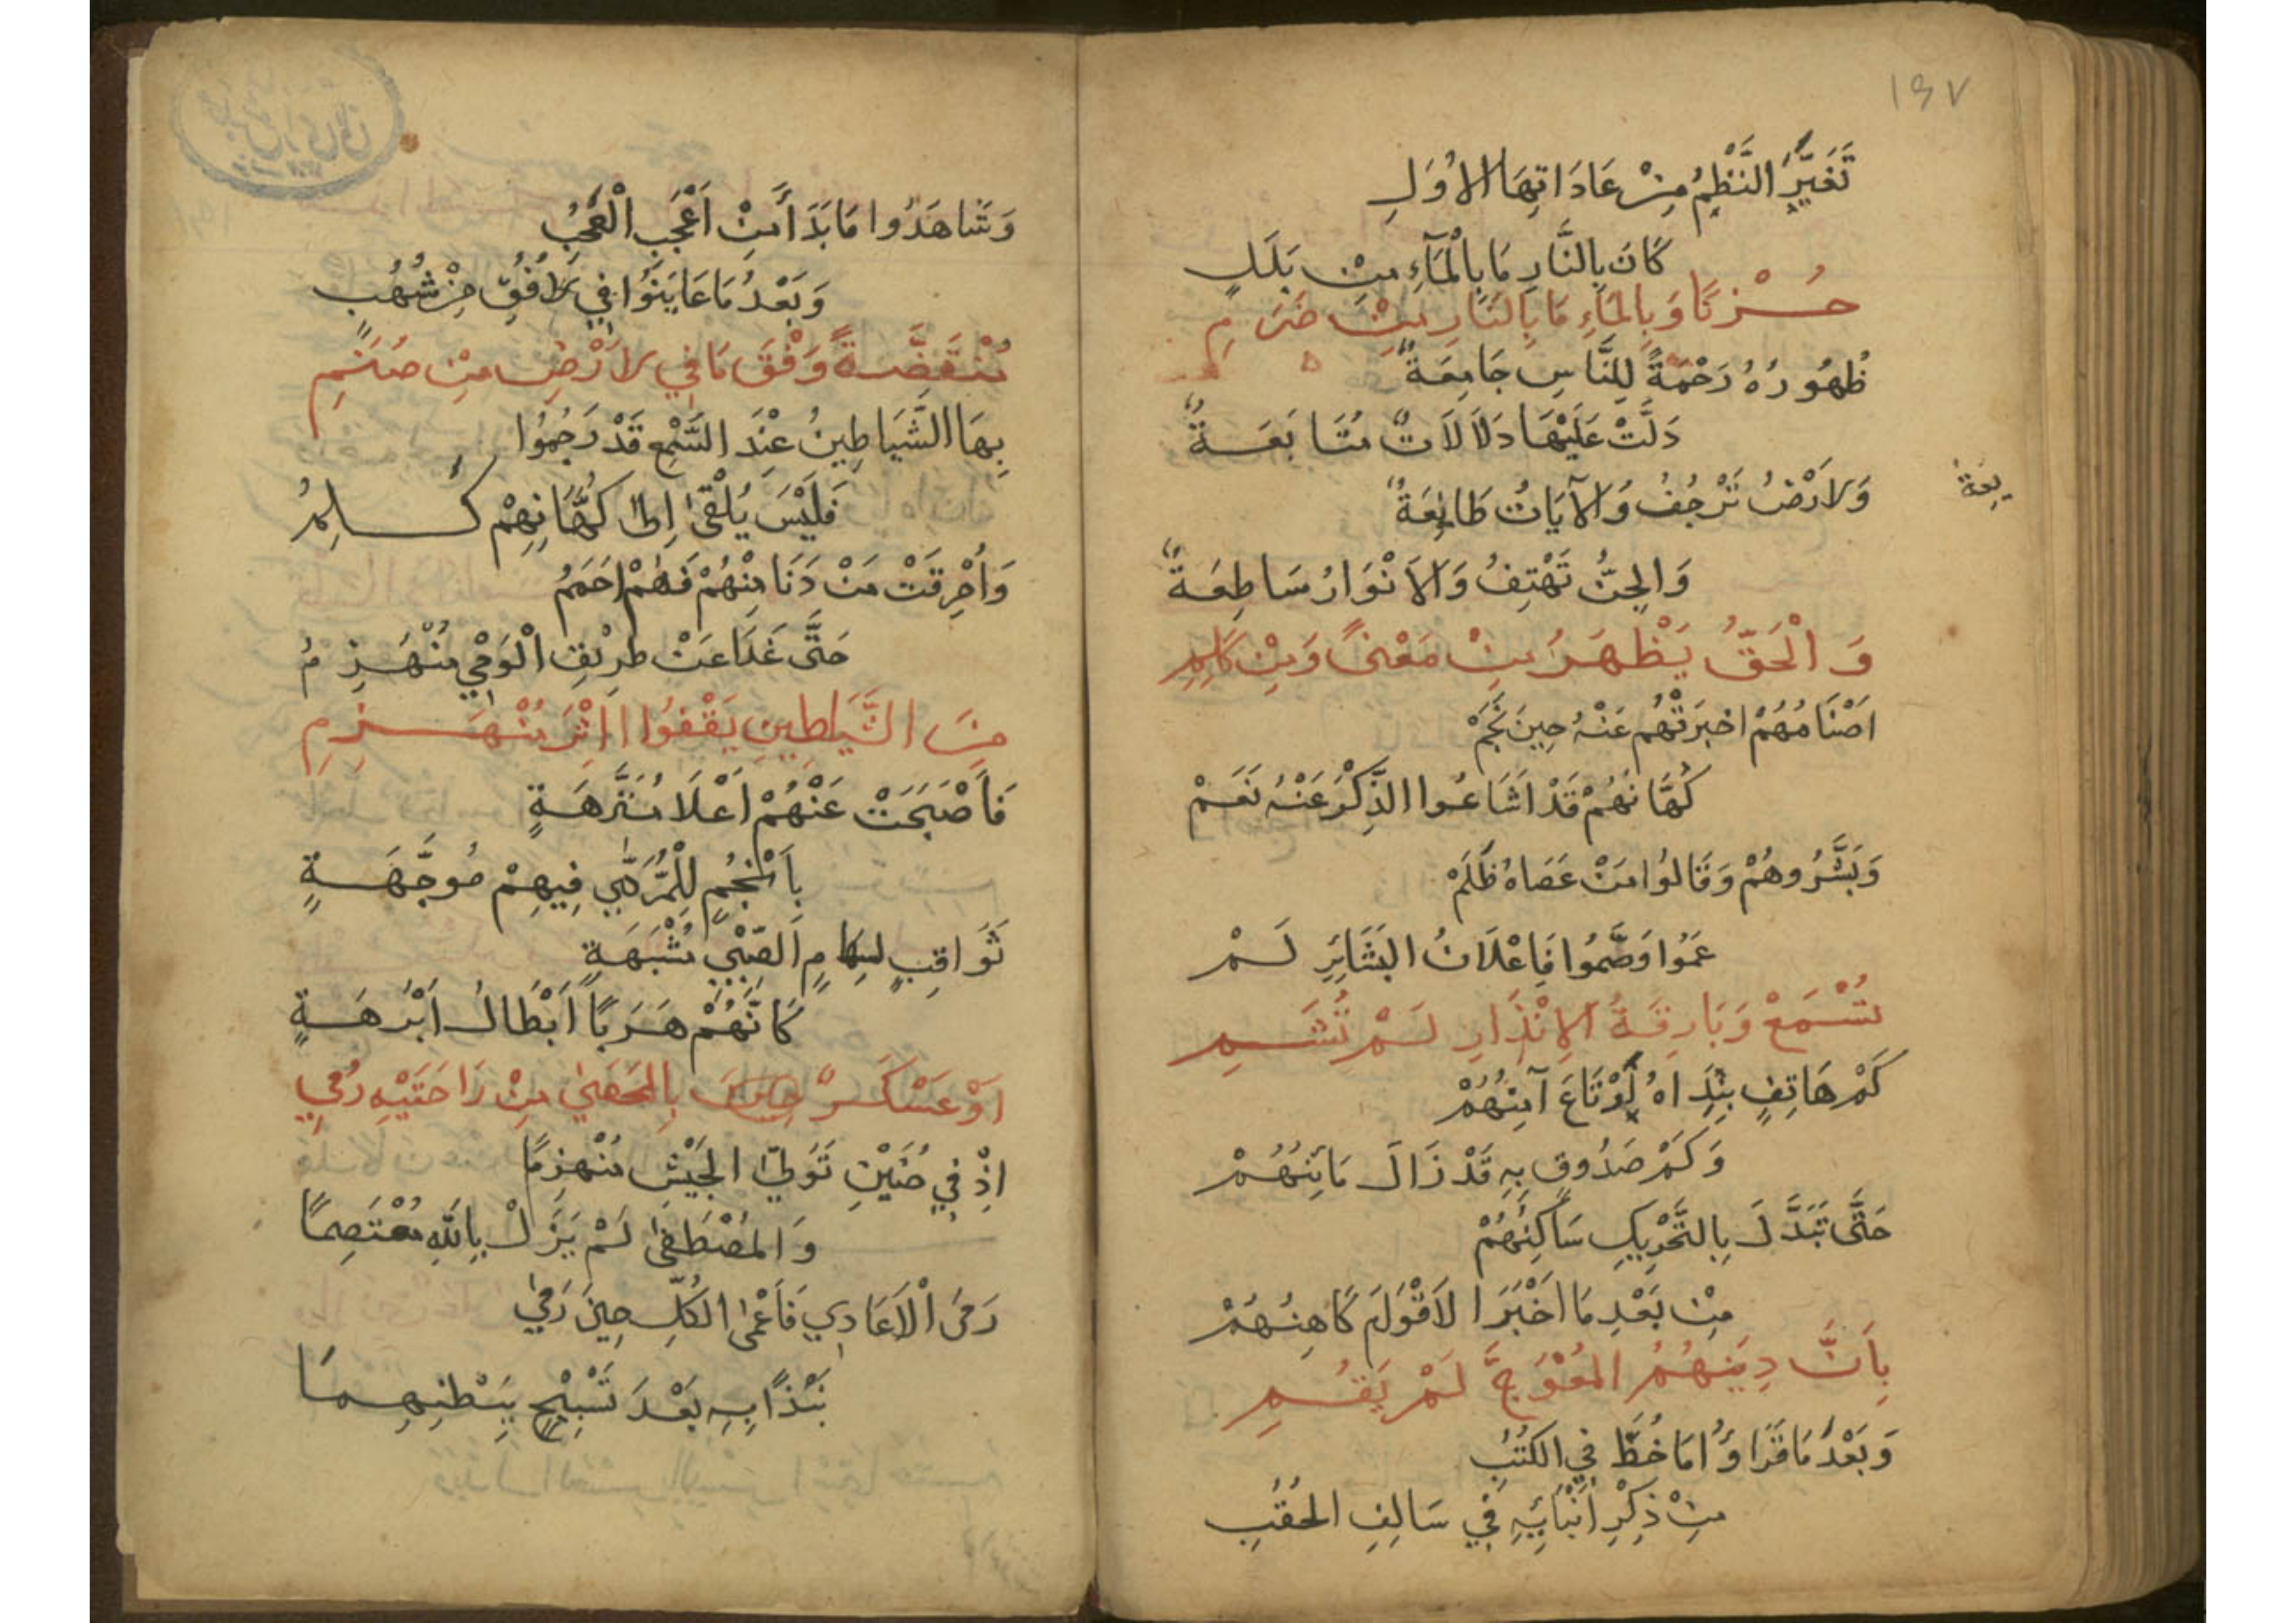 ١٤٧
تَغَيَّرَ النَّظْمُ مِنْ عَادَاتِهَا الاُوَلِ
كَانَ بِالنَّارِ مَا بِالْمَآءِ مِنْ بَلَلٍ
حُزْنًا وَبِالْمَاءِ مَا بِالنَّارِ مِنْ ضَرَمِ
ظُهُورُهُ رَحْمَةً لِلنَّاسِ جَامِعَةٌ
دَلَّتْ عَلَيْهَا دَلَالَاتٌ مُتَابَعَةٌ
وَلارَضُ تَرْجُفُ وَالآيَاتُ طَائِعَةٌ
يعة
وَالجِنُّ تَهْتِفُ وَالاَنْوَارُ سَاطِعَةٌ
وَالْحَقُّ يَظْهَرُ مِنْ مَعْنىً وَمِنْ كَلِمِ
اصْنَامُهُمْ اخبَرَتْهُم عَنْهُ حِينَ نَجَمْ
كُهَّانُهُمْ قَدْ اَشَاعُوا الذِّكْرَ عَنْهُ نَعَمْ
وَبَشَّرُوهُمْ وَقَالُوا مَنْ عَصَاهُ ظَلَمْ
عَمُوا وَصَّمُوا فَاِعْلَانُ البَشَائِرِ لَمْ
تُسْمَعْ وَبَارِقَةُ الاِنْذَارِ لَمْ تُشَمِ
كَمْ هَاتِفٍ بِنِدَاهُ لَوْتَاعَ آمِنُهُمْ
وَكَمْ صَدُوقٍ بِهِ قَدْ زَالَ مَائِنُهُمْ
حَتَّى تَبَدَّلَ بِالتَّحْرِيكِ سَاكِنُهُمْ
مِنْ بَعْدِ مَا اَخْبَرَ الاَقْوَامَ كَاهِنُهُمْ
بِاَنَّ دِينَهُمُ المُعْوَجَّ لَمْ يَقُمِ
وَبَعْدَ مَا قَرَاوُا مَا خُطَّ فِي الكُتُبِ
مِنْ ذِكْرِ اَنْبَائِهِ فِي سَالِفِ الحُقُبِ
وَشَاهَدُوا مَا بَدَا مِنْ اَعْجَبِ الْعَجَبِ
وَبَعْدُ مَا عَايَنُوا فِي لاُفُقِ مِنْ شُهُبٍ
مُنْقَضَّةً وَفْقَ مَا فِي لارَضِ مِنْ صَنَمِ
بِهَا الشَّيَاطِينُ عِنْدَ السَّمْعِ قَدْ رَجِمُوا
فَلَيْسَ يُلْقىٰ اِلىٰ كُهَّانِهِمْ كَلِمُ
وَاُحْرِقَتْ مَنْ دَنَا مِنْهُمْ فَهُمْ حَمَمُ
حَتَّى غَدَا عَنْ طَرِيْقِ الْوَحْيِ مُنْهَزِمُ
مِنَ الشَّيَاطِينِ يَقْفُوا اِثْرَ مُنْهَزِمِ
فَاَصْبَحَتْ عَنْهُمْ اَعْلَا مُنَزَّهَةٍ
بِاَنْجُمٍ لِلْمَرَمِّي فِيهِمْ مُوَجَّهَةٍ
ثَوَاقِبٍ لِسِهَامِ الصِّبْيِ مُشْبَهَةٍ
كَاَنَّهُمْ هَرَبًا اَبْطَالُ اَبْرَهَةٍ
اَوْ عَسْكَرٌ بِالحَصىٰ مِنْ رَاحَتَيْهِ رُمِي
اِذْ فِي حُنَيْنِ تَوَلىّٰ الجَيْشِ مُنْهَزِمًا
وَالمُصْطَفىٰ لَمْ يَزَلْ بِاللهِ مُعْتَصِمًا
رَمَى الْاَعَادِي فَاَعْمىٰ الكُلَّ حِينَ رَمىٰ
نَبْذًا بِهِ بَعْدَ تَسْبِيْحٍ بِبَطْنِهِمَا